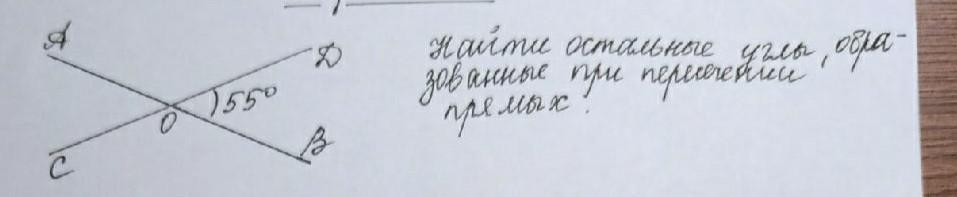 A
D
Найти остальные углы, обра-
зованные при пересечении
прямых.
55°
O
C
B